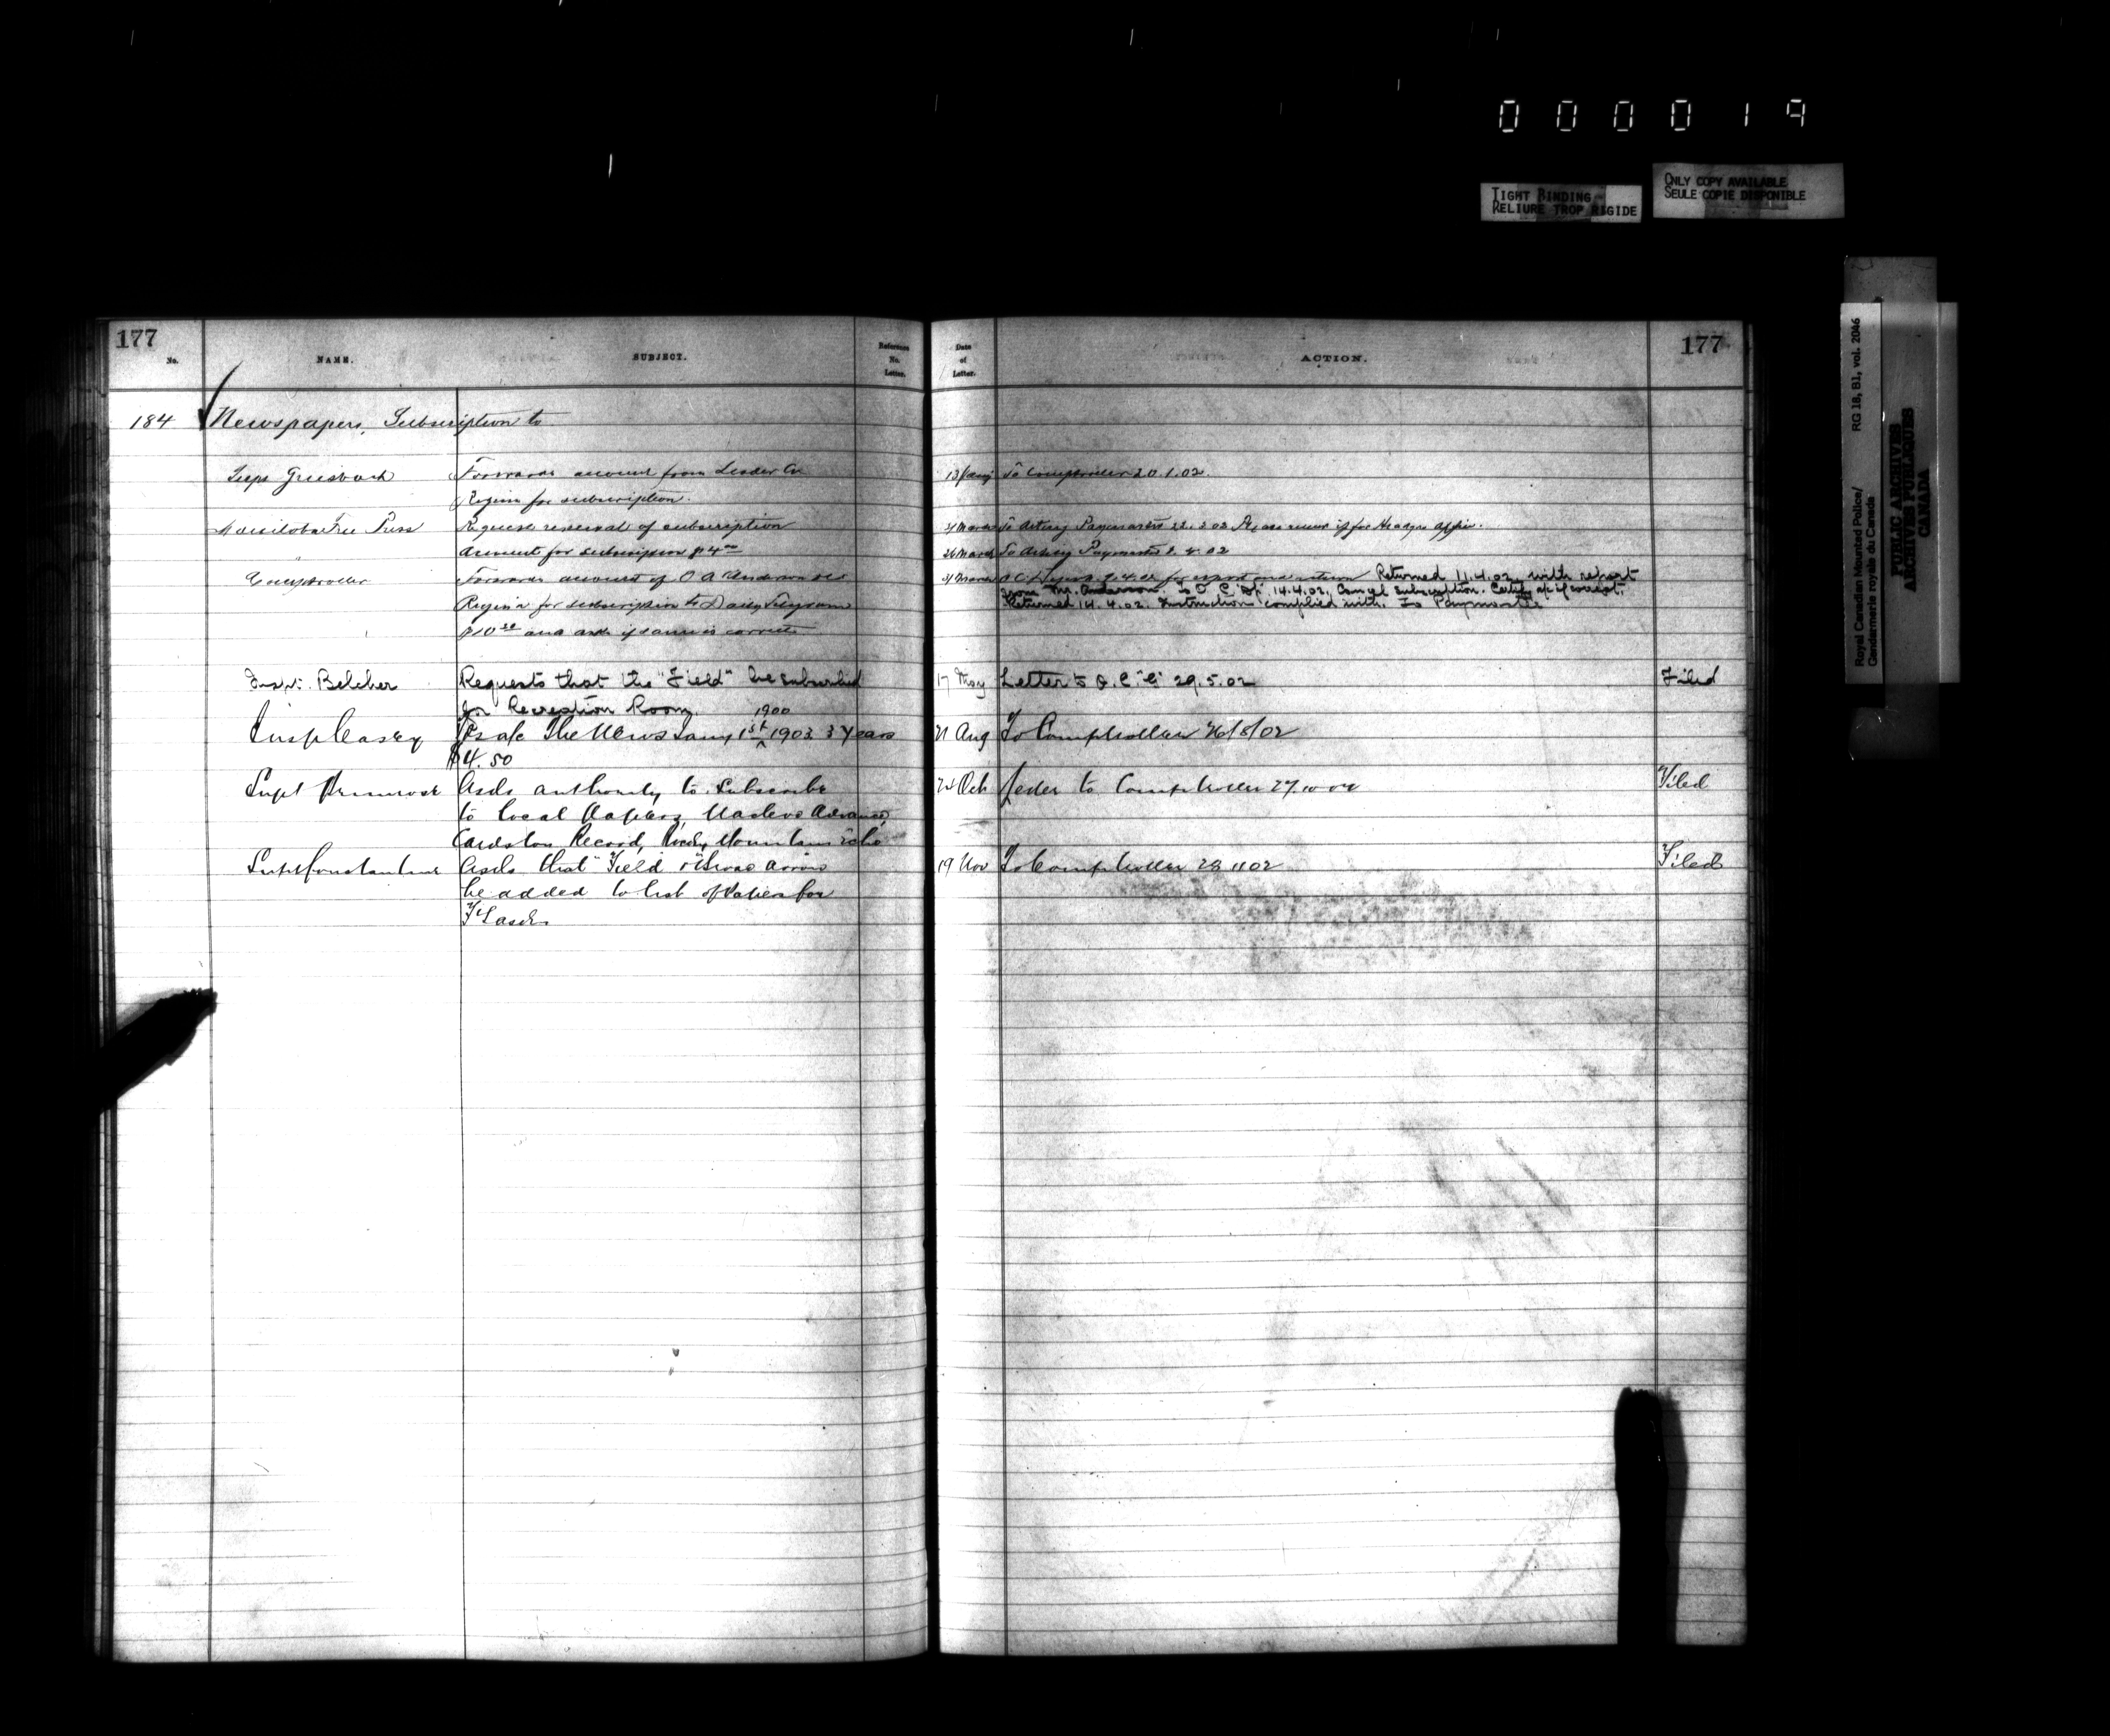 0 0 0 0 1 9
TIGHT BINDING
RELIURE TROP RIGIDE
ONLY COPY AVAILABLE
SEULE COPIE DISPONIBLE
Royal Canadian Mounted Police/ RG 18, B1, vol. 2046
Gendarmerie royale du Canada
PUBLIC ARCHIVES
ARCHIVES PUBLIQUES
CANADA
177
No. NAME. SUBJECT. Reference No. Letter.
Date of Letter. ACTION. 177
184 Newspapers, Subscription to
Supt Griesbach Forwards account from Leader Co 13 Jany To Comptroller 20.1.02.
Regina for subscription.
Manitoba Free Press Requests renewal of subscription March To Acting Paymaster 22.3.02 Please renew if for Headqrs office.
Account for subscription $4 26 March To Acting Paymaster 2.4.02
Comptroller Forwards account of O A Anderson March 9.4.02 for report and return Returned 11.4.02 with report
from Mr. Anderson. To O.C. "Dp" 14.4.02. Cancel subscription. Certify a/c if correct.
Regina for subscription to Daily Telegram Returned 14.4.02. Instructions complied with. To Paymaster
$10 and asks if same is correct
Inspr. Belcher Requests that the "Field" be subscribed 17 May Letter to O.C. "E" 29.5.02 Filed
for Recreation Room.
Insp Casey Fs a/c The News Jany 1st 1900 1903 3 years 21 Aug To Comptroller 26/8/02
$4.50
Supt Primrose Asks authority to Subscribe 24 Oct to Comptroller 27 10 02 Filed
to local Papers, Macleod Advance,
Cardston Record, Rocky Mountain Echo
Supt Constantine Asks that "Field & Broad Arrow 19 Nov To Comptroller 28 11 02 Filed
be added to list of Papers for
F Sask.